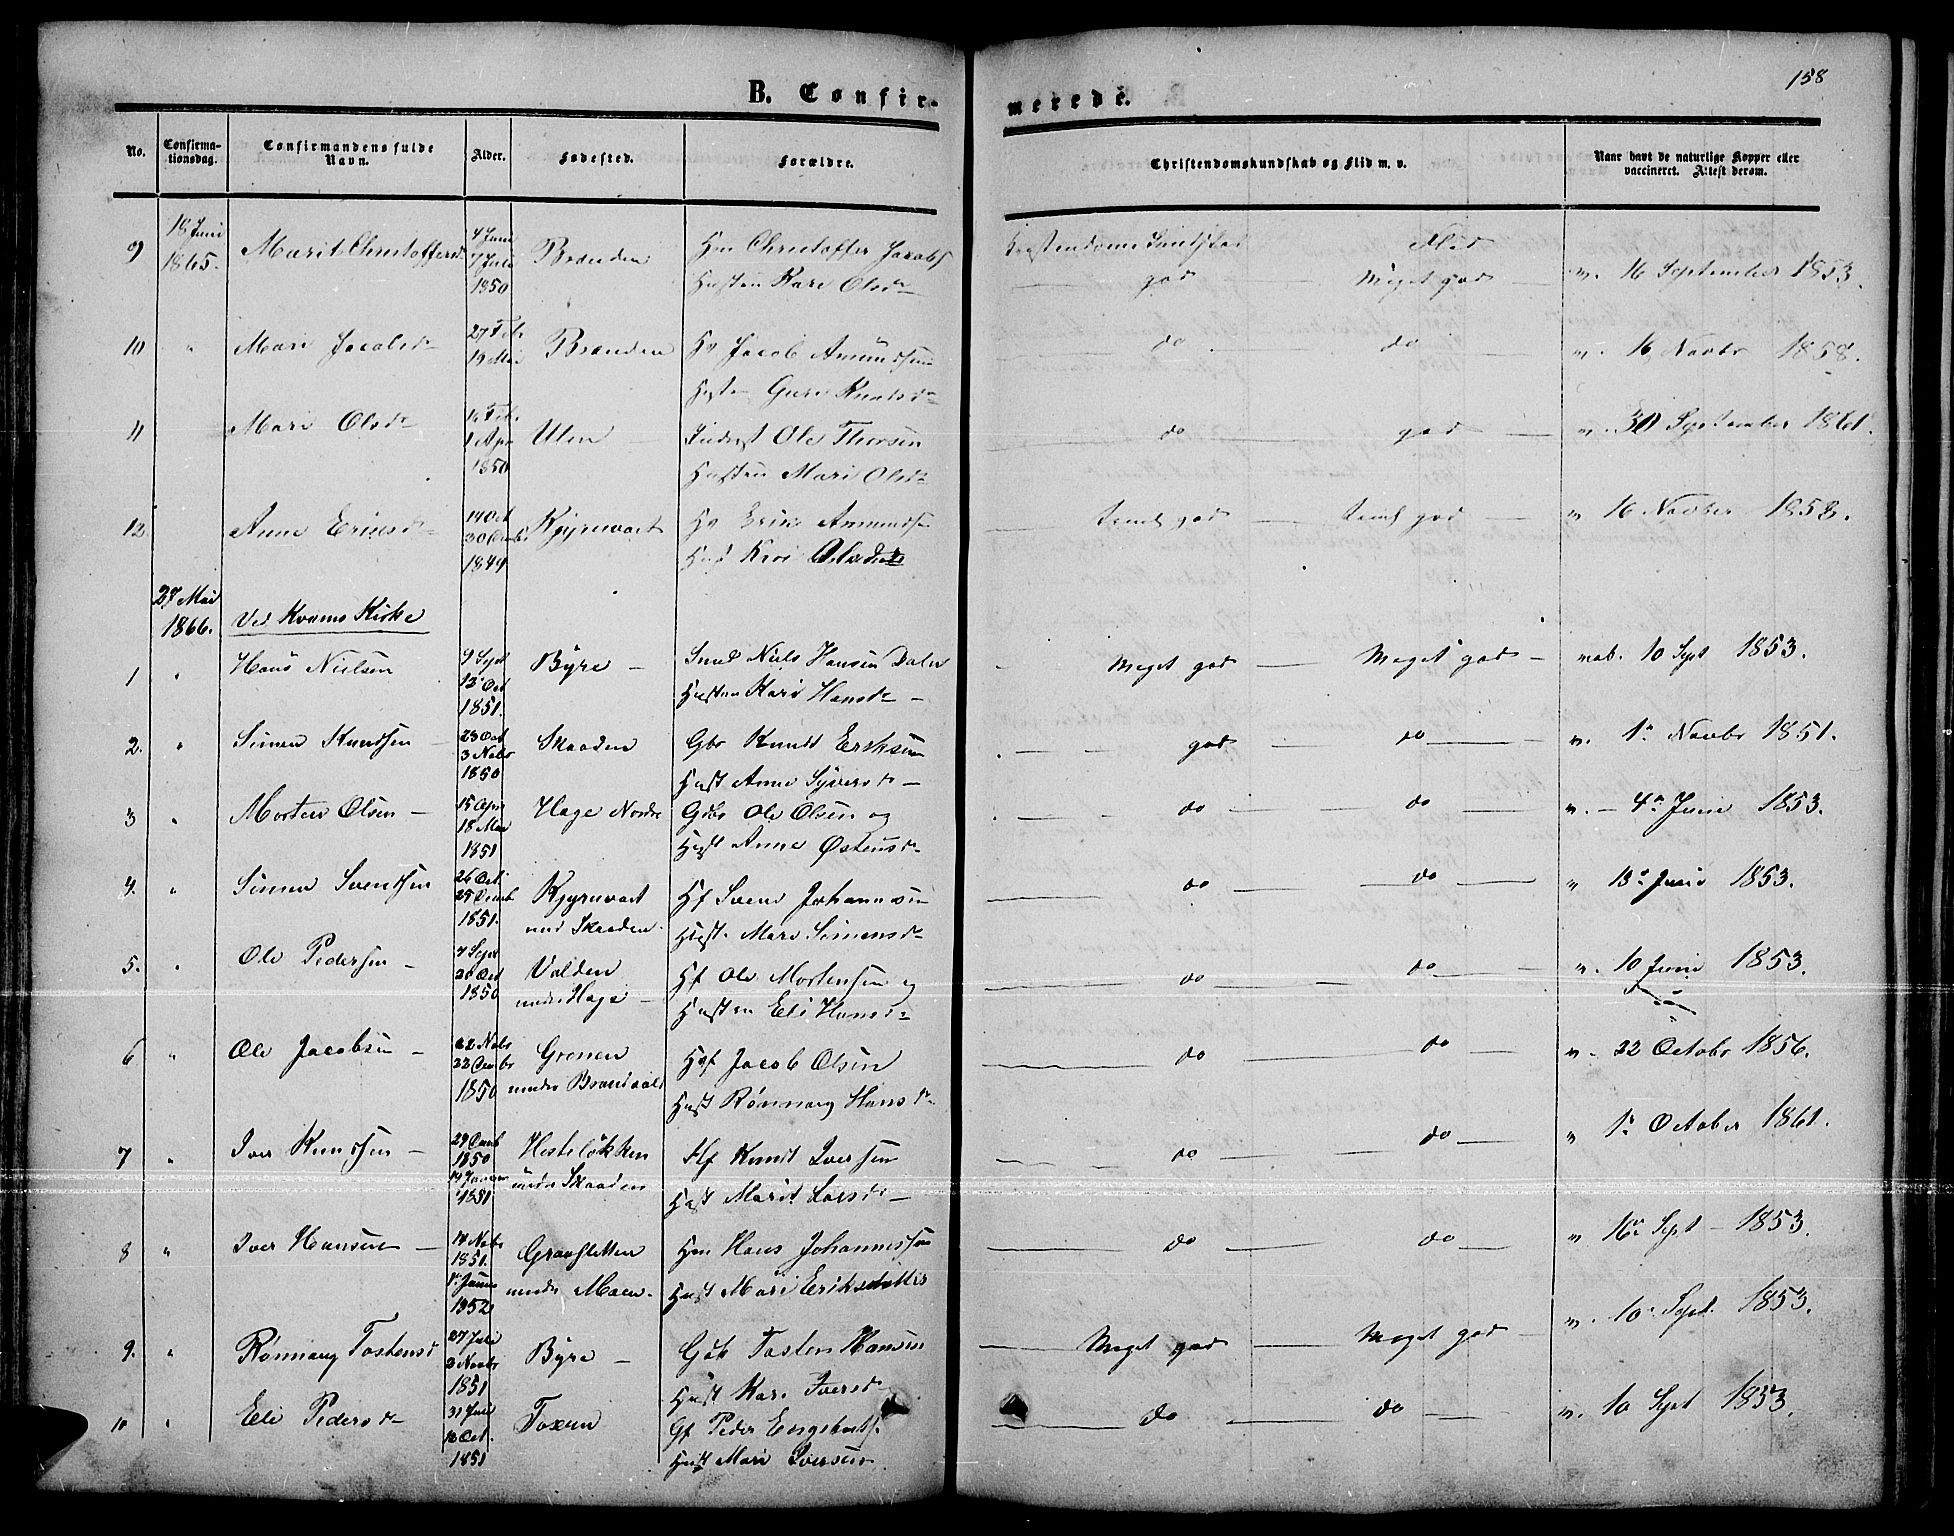 158
B. Confir-
merede.
No.
Confirma-
tionsdag.
Confirmandens fulde
Navn.
Alder.
Fødested.
Forældre.
Christendomskundskab og Flid m. v.
Naar havt de naturlige Kopper eller
vaccineret. Attest derom.
9 18 Juni 1865. Marit Christoffersd 4 Juni 7 Juli 1850 Brænden Christoffer Jacobs
Husten Kari Olsdr
Flid
god Meget god v. 16 September 1853.
10 " Mari Jacobsdr 27 Feb 19 Mai Brænden Hv Jacob Amundsen
do do v. 16 Novbr 1858.
11 Mari Olsdr 1850 Ulen Ole Thorsen
Husten Mari Olsdr
do god v. 30 September 1861.
12 Anne Ericsdr 14 Oct 1849 Hv Eric Amundsen
teml god teml god v 16 Novber 1858.
27 Mai 1866. Ved Kvams Kirke
1 " Hans Nielsen 9 Sept 12 Oct 1851. Byre Smed Niels Hansen Dalen
Husten Kari Hansdr
Meget god Meget god vab. 10 Sept 1853.
2. " Simen Knudsen 23 Oct 3 Nobr 1850 Skaaden Gbr Knudt Eriksen
Hust Anne Syversdr
god do v. 1e Novbr 1851.
3 " Morten Olsen 15 Apr 18 Mai 1851 Hage Nordre Gdbr Ole Olsen og
Hust Anne Østensdr
do do v. 4e Juni 1853.
4. " Simen Svendsen 26 Oct 25 Decmb 1851. under Skaaden Hf Svend Johannesen
Hust. Mari Simensdr
do do " 13e Juni 1853.
5. " Ole Pedersen 7 Sept 20 Oct 1850 Volden under Hage Hf Ole Mortensen og
Husten Eli Hansdr
do do v. 10 Juni 1853.
6 " Ole Jacobsen 22 Nobr 1850 Gronen Jacob Olsen
Hust Rønnaug Hansdr
do do v. 22 Octobr 1856.
7 " Iver Knudsen 29 Decmb 1850 19 Januar 1851 Hesteløkken under Skaaden Hf Knudt Iversen
Hust Marit Larsdr
do do " 1e October 1861.
8 " Iver Hansen 18 Nobr 1851. 1852 Graasletten under Moen. Hans Johannessen
Hust Mari Eriksdatter
do do " 16e Sept 1853.
9. " Rønnaug Tostensd 27 Juli 2 Novbr 1851 Byre Tosten Hansen
Hust Kari Iversdr
Meget god Meget god v. 10e Sept. 1853.
10 " Eli Pedersdr 31 Juli 12 Oct. 1851 Toxen Gf Peder Engebretsen
Hust Mari Iversdr
do do v. 10 Sept 1853.